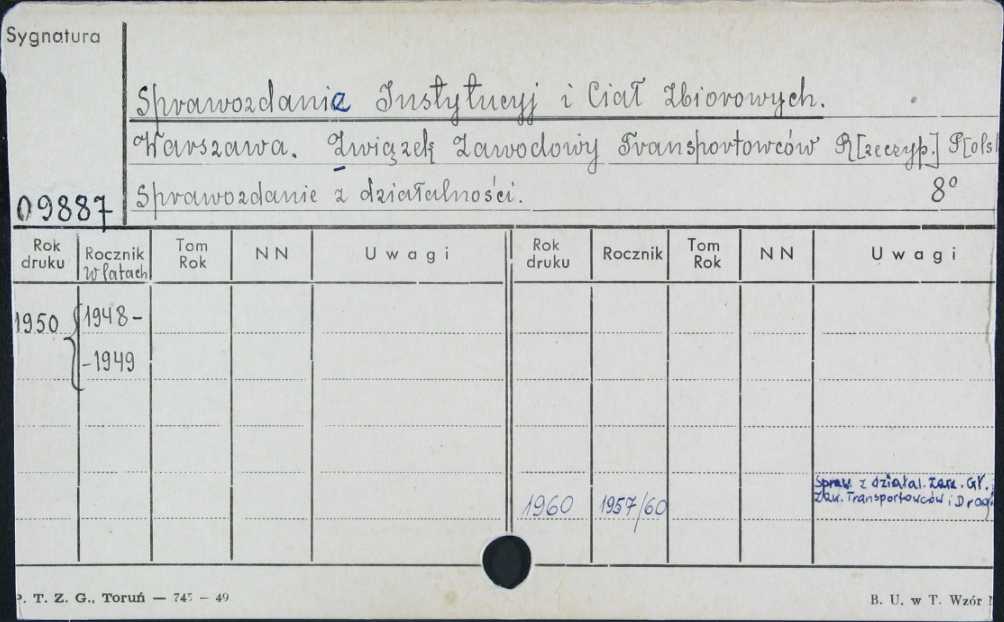 Sygnatura
Sprawozdania Instytucyj i Ciał Zbiorowych.
Warszawa. Związek Zawodowy Transportowców R[zeczyp.] P[ols
Sprawozdanie z działalności. 8°
09887
Rok druku Rocznik w latach Tom Rok NN Uwagi Rok druku Rocznik Tom Rok NN Uwagi
1950 1948-
-1949
Spraw. z działal. Zarz. Gł.
1960 1957/60 Zaw. Transportowców i Drog
P. T. Z. G., Toruń — 745 — 49 B. U. w T. Wzór